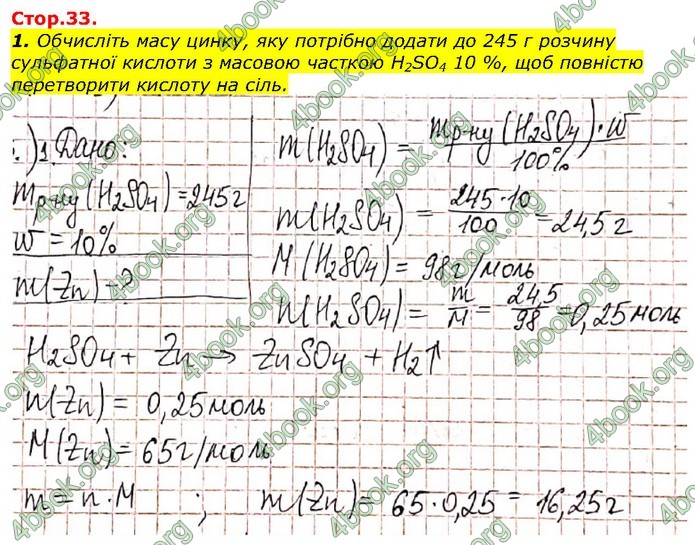 Стор.33.
1. Обчисліть масу цинку, яку потрібно додати до 245 г розчину
сульфатної кислоти з масовою часткою H₂SO₄ 10 %, щоб повністю
перетворити кислоту на сіль.
1. Дано:
mр-ну(H₂SO₄)=245г
w = 10%
m(Zn) - ?
m(H₂SO₄) = mр-ну(H₂SO₄)·w / 100%
m(H₂SO₄) = 245·10 / 100 = 24,5 г
M(H₂SO₄) = 98г/моль
n(H₂SO₄) = m/M = 24,5/98 = 0,25 моль
H₂SO₄ + Zn → ZnSO₄ + H₂↑
n(Zn) = 0,25 моль
M(Zn) = 65г/моль
m = n·M ; m(Zn) = 65·0,25 = 16,25г
4book.org